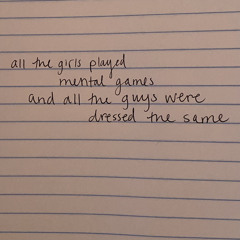 all the girls played
mental games
and all the guys were
dressed the same